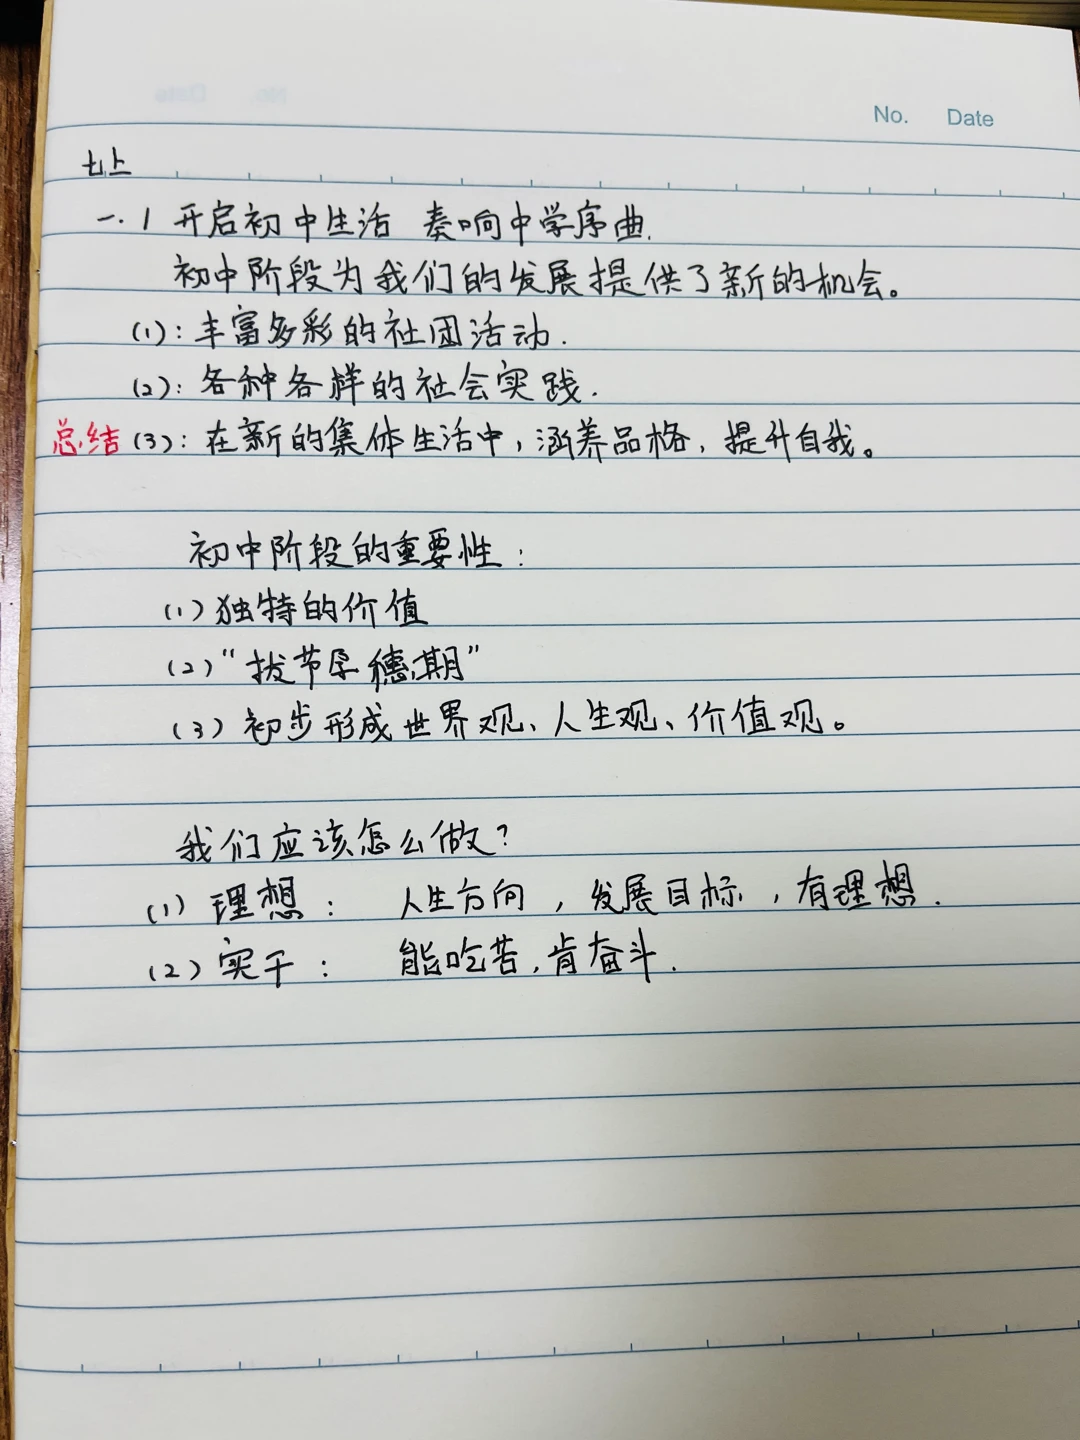 No. Date
七上
一.1 开启初中生活 奏响中学序曲.
初中阶段为我们的发展提供了新的机会。
(1):丰富多彩的社团活动.
(2):各种各样的社会实践.
总结(3):在新的集体生活中,涵养品格,提升自我。
初中阶段的重要性:
(1)独特的价值
(2)“拔节孕穗期”
(3)初步形成世界观、人生观、价值观。
我们应该怎么做?
(1)理想: 人生方向,发展目标,有理想.
(2)实干: 能吃苦,肯奋斗.